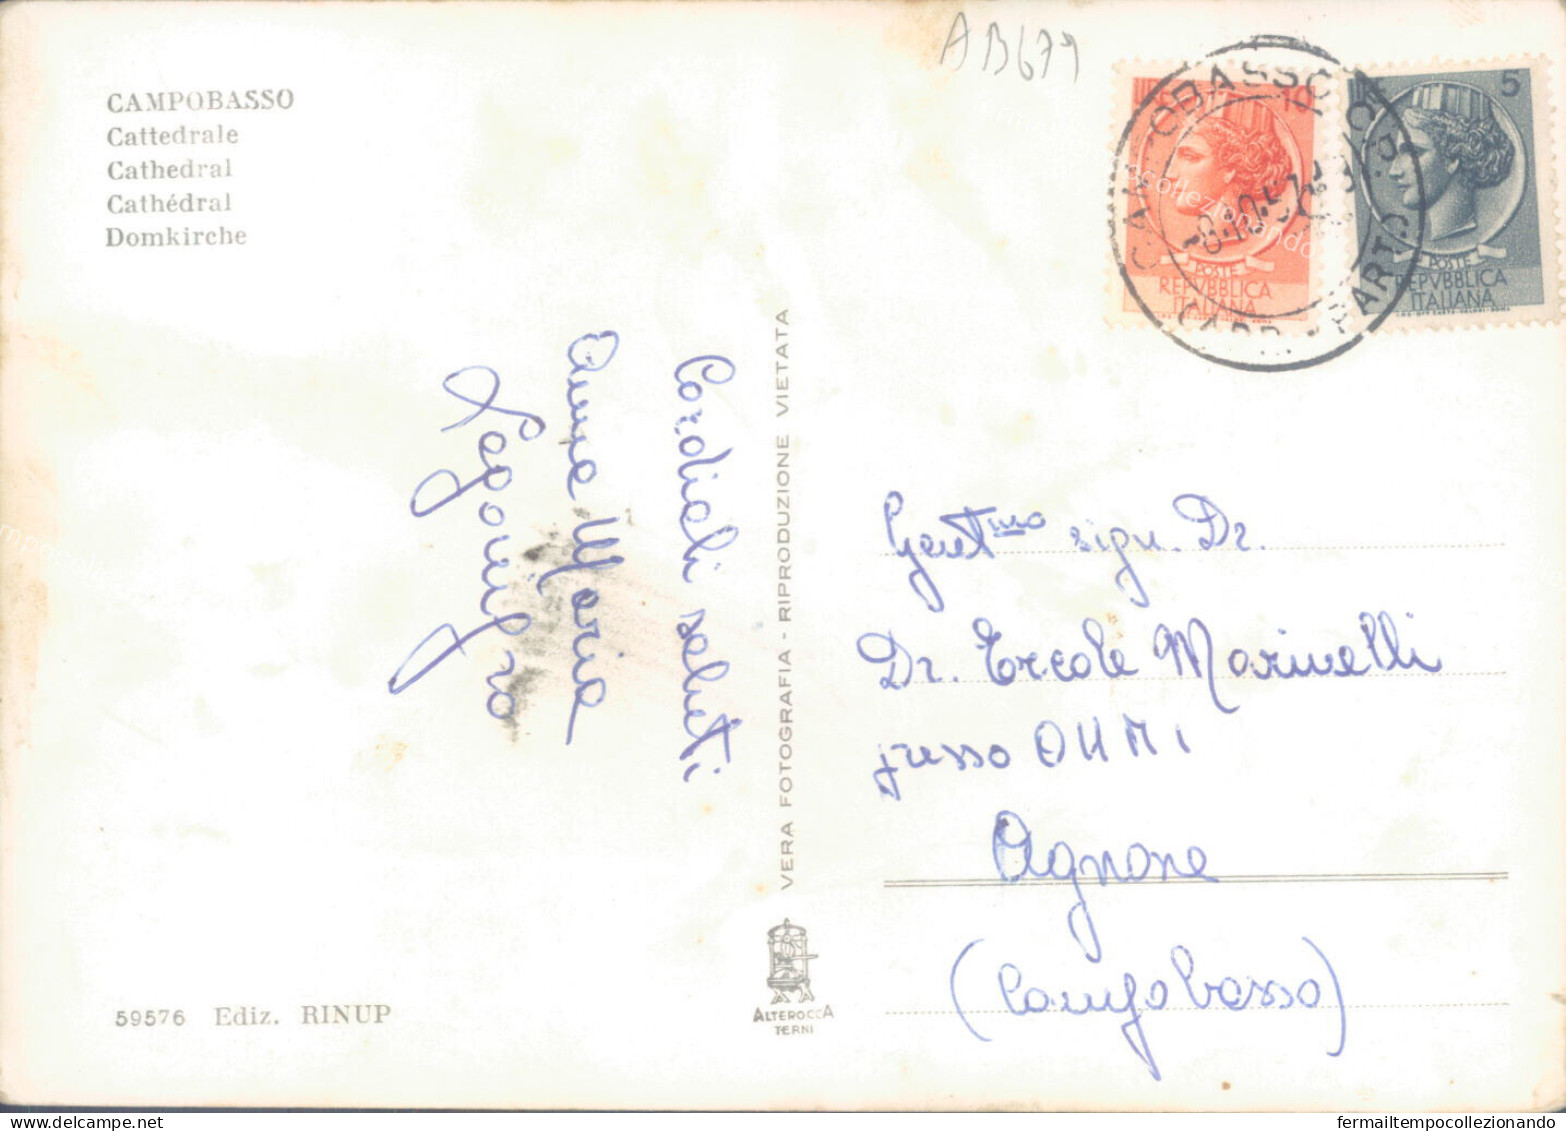 AB679
CAMPOBASSO
Cattedrale
Cathedral
Cathédral
Domkirche
10
POSTE
REPVBBLICA
ITALIANA
5
POSTE
REPVBBLICA
ITALIANA
CAMPOBASSO
Cordiali saluti
Anna Maria
VERA FOTOGRAFIA - RIPRODUZIONE VIETATA
Gent.mo sign. Dr.
Dr. Ercole Marinelli
presso
Agnone
(Campobasso)
59576 Ediz. RINUP
ALTEROCCA
TERNI
fermailtempocollezionando